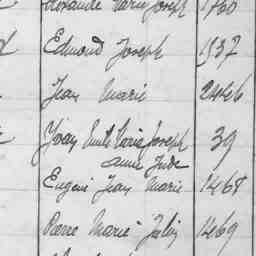 Alexandre Marie Joseph 1760
Edmond Joseph 1937
Jean Marie 2446
Yvan Emile Marie Joseph 39
Aimé Jude
Eugène Jean Marie 1468
Pierre Marie Julien 1469